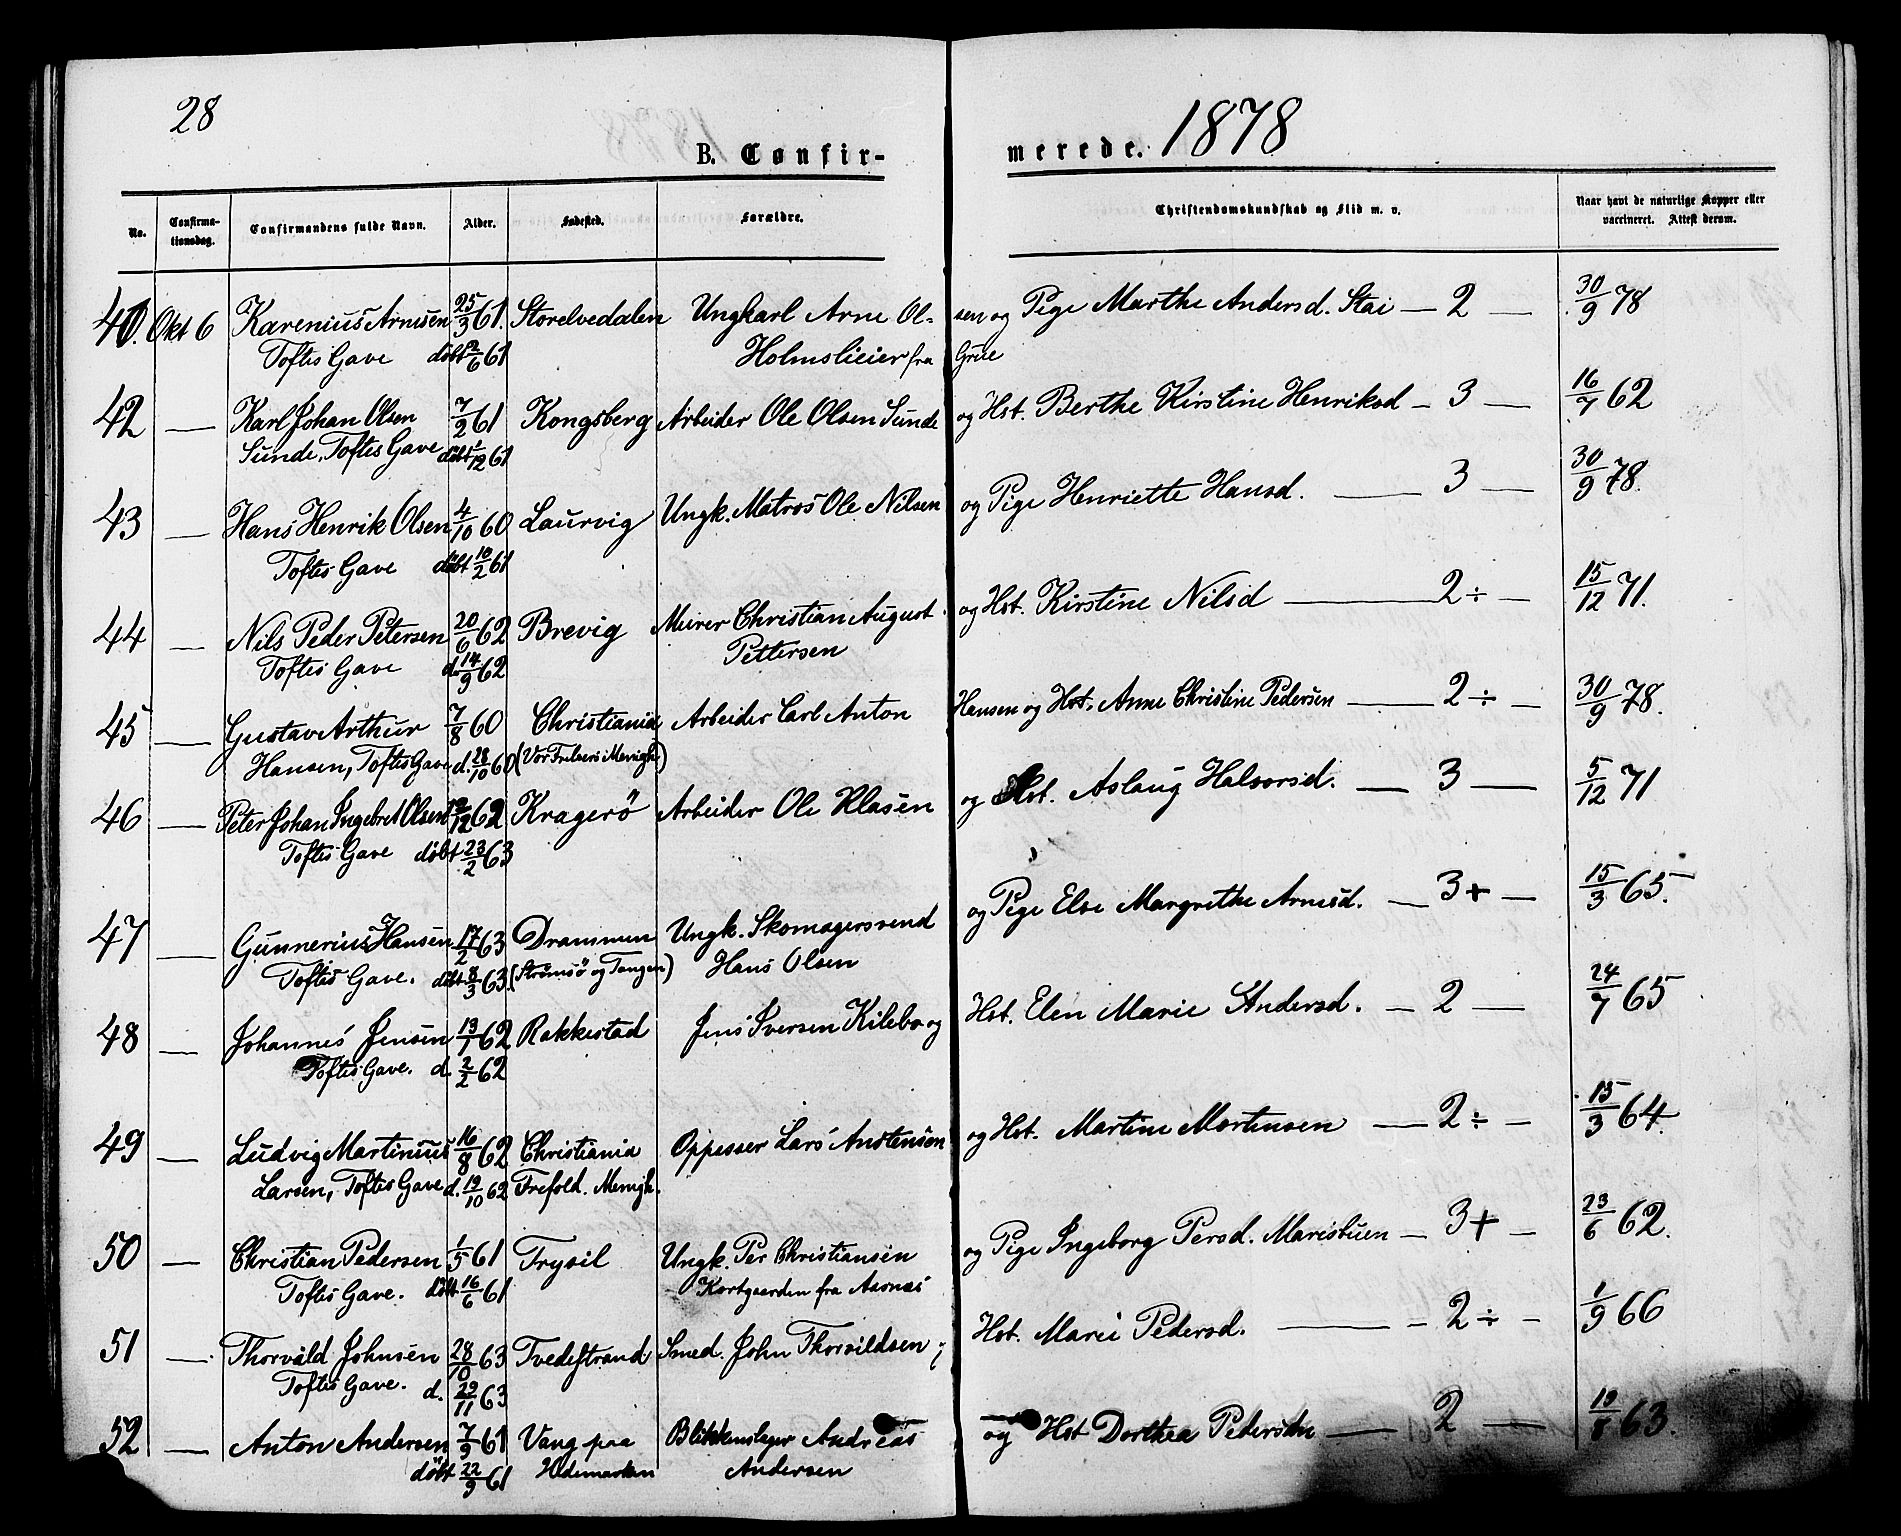 28
B. Confir-
merede. 1878
No.
Confirma-
tionsdag.
Confirmandens fulde Navn.
Alder.
Fødested.
Forældre.
Christendomskundskab og Flid m. v.
Naar havt de naturlige Kopper eller
vaccineret. Attest derom.
Okt 6 Karenius Arnesen 25/3 61. Storelvedalen Ungkarl Arne Ol- sen og Pige Marthe Andersd. Stai — 2 — 30/9 78
Toftes Gave döbt 2/6 61 Holmslieier fra Grue
42 — Karl Johan Olsen 7/2 61 Kongsberg Arbeider Ole Olsen Sunde og Hst. Berthe Kirstine Henriksd — 3 — 16/7 62
Sunde, Toftes Gave döbt 1/12 61
43 — Hans Henrik Olsen 4/10 60 Laurvig Ungk. Matros Ole Nilsen og Pige Henriette Hansd. — 3 — 30/9 78.
Toftes Gave döbt 10/2 61
44 — Nils Peder Petersen 20/6 62 Brevig Murer Christian August og Hst. Kirstine Nilsd — 2 ÷ — 15/12 71.
Toftes Gave d. 14/9 62 Pettersen
45 — Gustav Arthur 7/8 60 Christiania Arbeider Carl Anton Hansen og Hst. Anne Christine Pedersen — 2 ÷ — 30/9 78.
Hansen, Toftes Gave d. 28/10 60 (Vor Frelsers Menigh.)
46 — Peter Johan Ingebret Olsen 62 Kragerö Arbeider Ole Klasen og Hst. Aslaug Halvorsd. — 3 — 5/12 71
Toftes Gave döbt 23/2 63
47 — Gunnerius Hansen 17/2 63 Drammen Ungk. Skomagersvend og Pige Else Margrethe Arnesd. — 3 + — 15/3 65.
Toftes Gave. döbt 8/3 63. (Strömsö og Tangen) Hans Olsen
48 — Johannes Jensen 13/1 62 Rakkestad Jens Iversen Kilebo og Hst. Elen Marie Andersd. — 2 — 24/7 65
Toftes Gave. d. 2/2 62
49 — Ludvig Martinius 16/8 62 Christiania Oppasser Lars Anstensen og Hst. Martine Mortensen — 2 ÷ — 15/3 64.
Larsen, Toftes Gave d. 19/10 62 Trefold. Menigh.
50 — Christian Pedersen 1/5 61 Trysil Ungk. Per Christiansen og Pige Ingeborg Persd. Maristuen — 3 + — 23/6 62.
Toftes Gave. döbt 16/6 61 Kortgaarden fra Aasnæs
51 — Thorvald Johnsen 28/10 63 Tvedestrand Smed. John Thorvildsen Hst. Marie Pedersd. — 2 ÷ — 1/9 66
Toftes Gave. d. 29/11 63
52 — Anton Andersen 7/9 61 Vang paa Blikkenslager Andreas og Hst Dorthea Pedersdn — 2 — 19/8 63.
döbt 22/9 61 Hedemarken Andersen